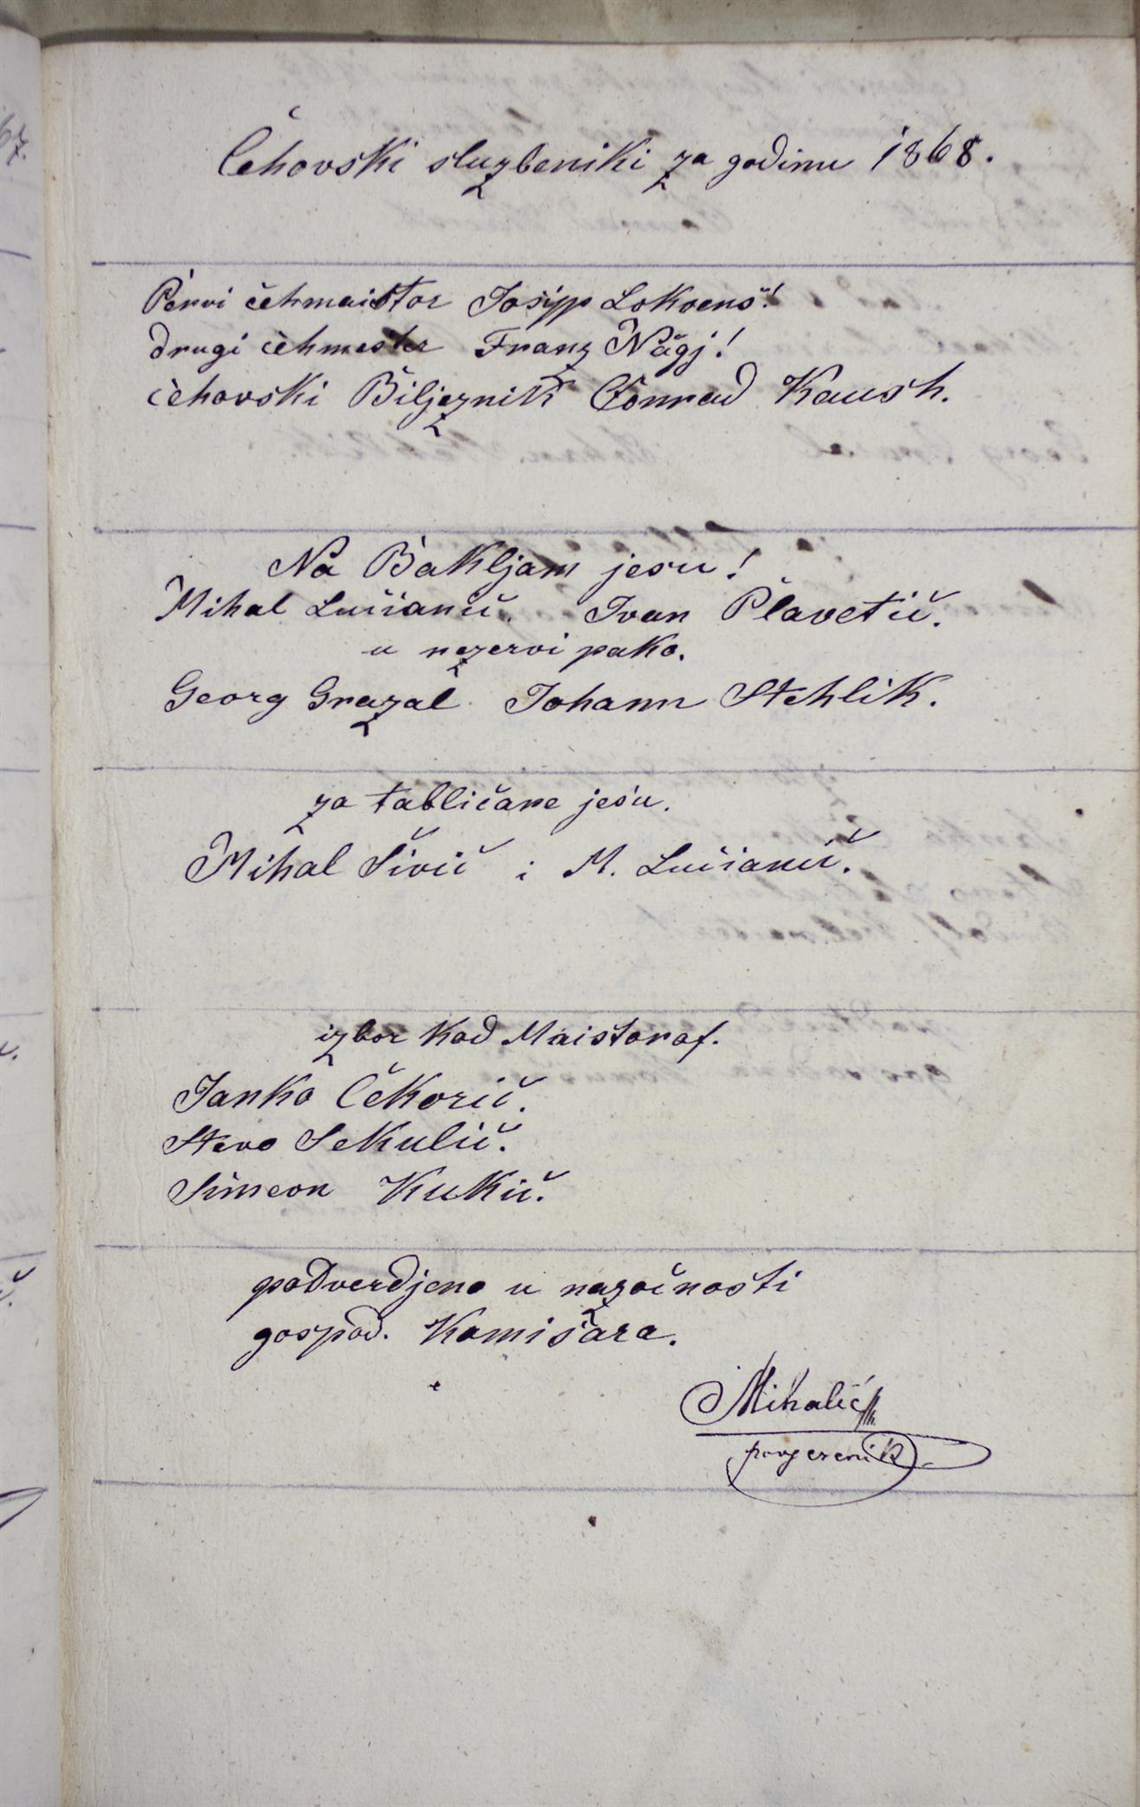 Čehovski službeniki za godinu 1868.
Pervi čehmaistor Josip Lokvenš!
drugi čehmester Franz Nàgj!
čehovski Biljeznik Conrad Kaush.
Na Bakljam jesu!
Mihal Lučianič. Ivan Plavetič.
u rezervi pako.
Georg Grazal Johann Stehlik.
za tabličare jesu.
Mihal Šivič i M. Lučianič.
izbor kod Maistoraf.
Janko Čekorič.
Stevo Sekulič.
Simeon Kukič.
podverdjeno u nazočnosti
gospod. Komisara.
Mihalić
povjerenik